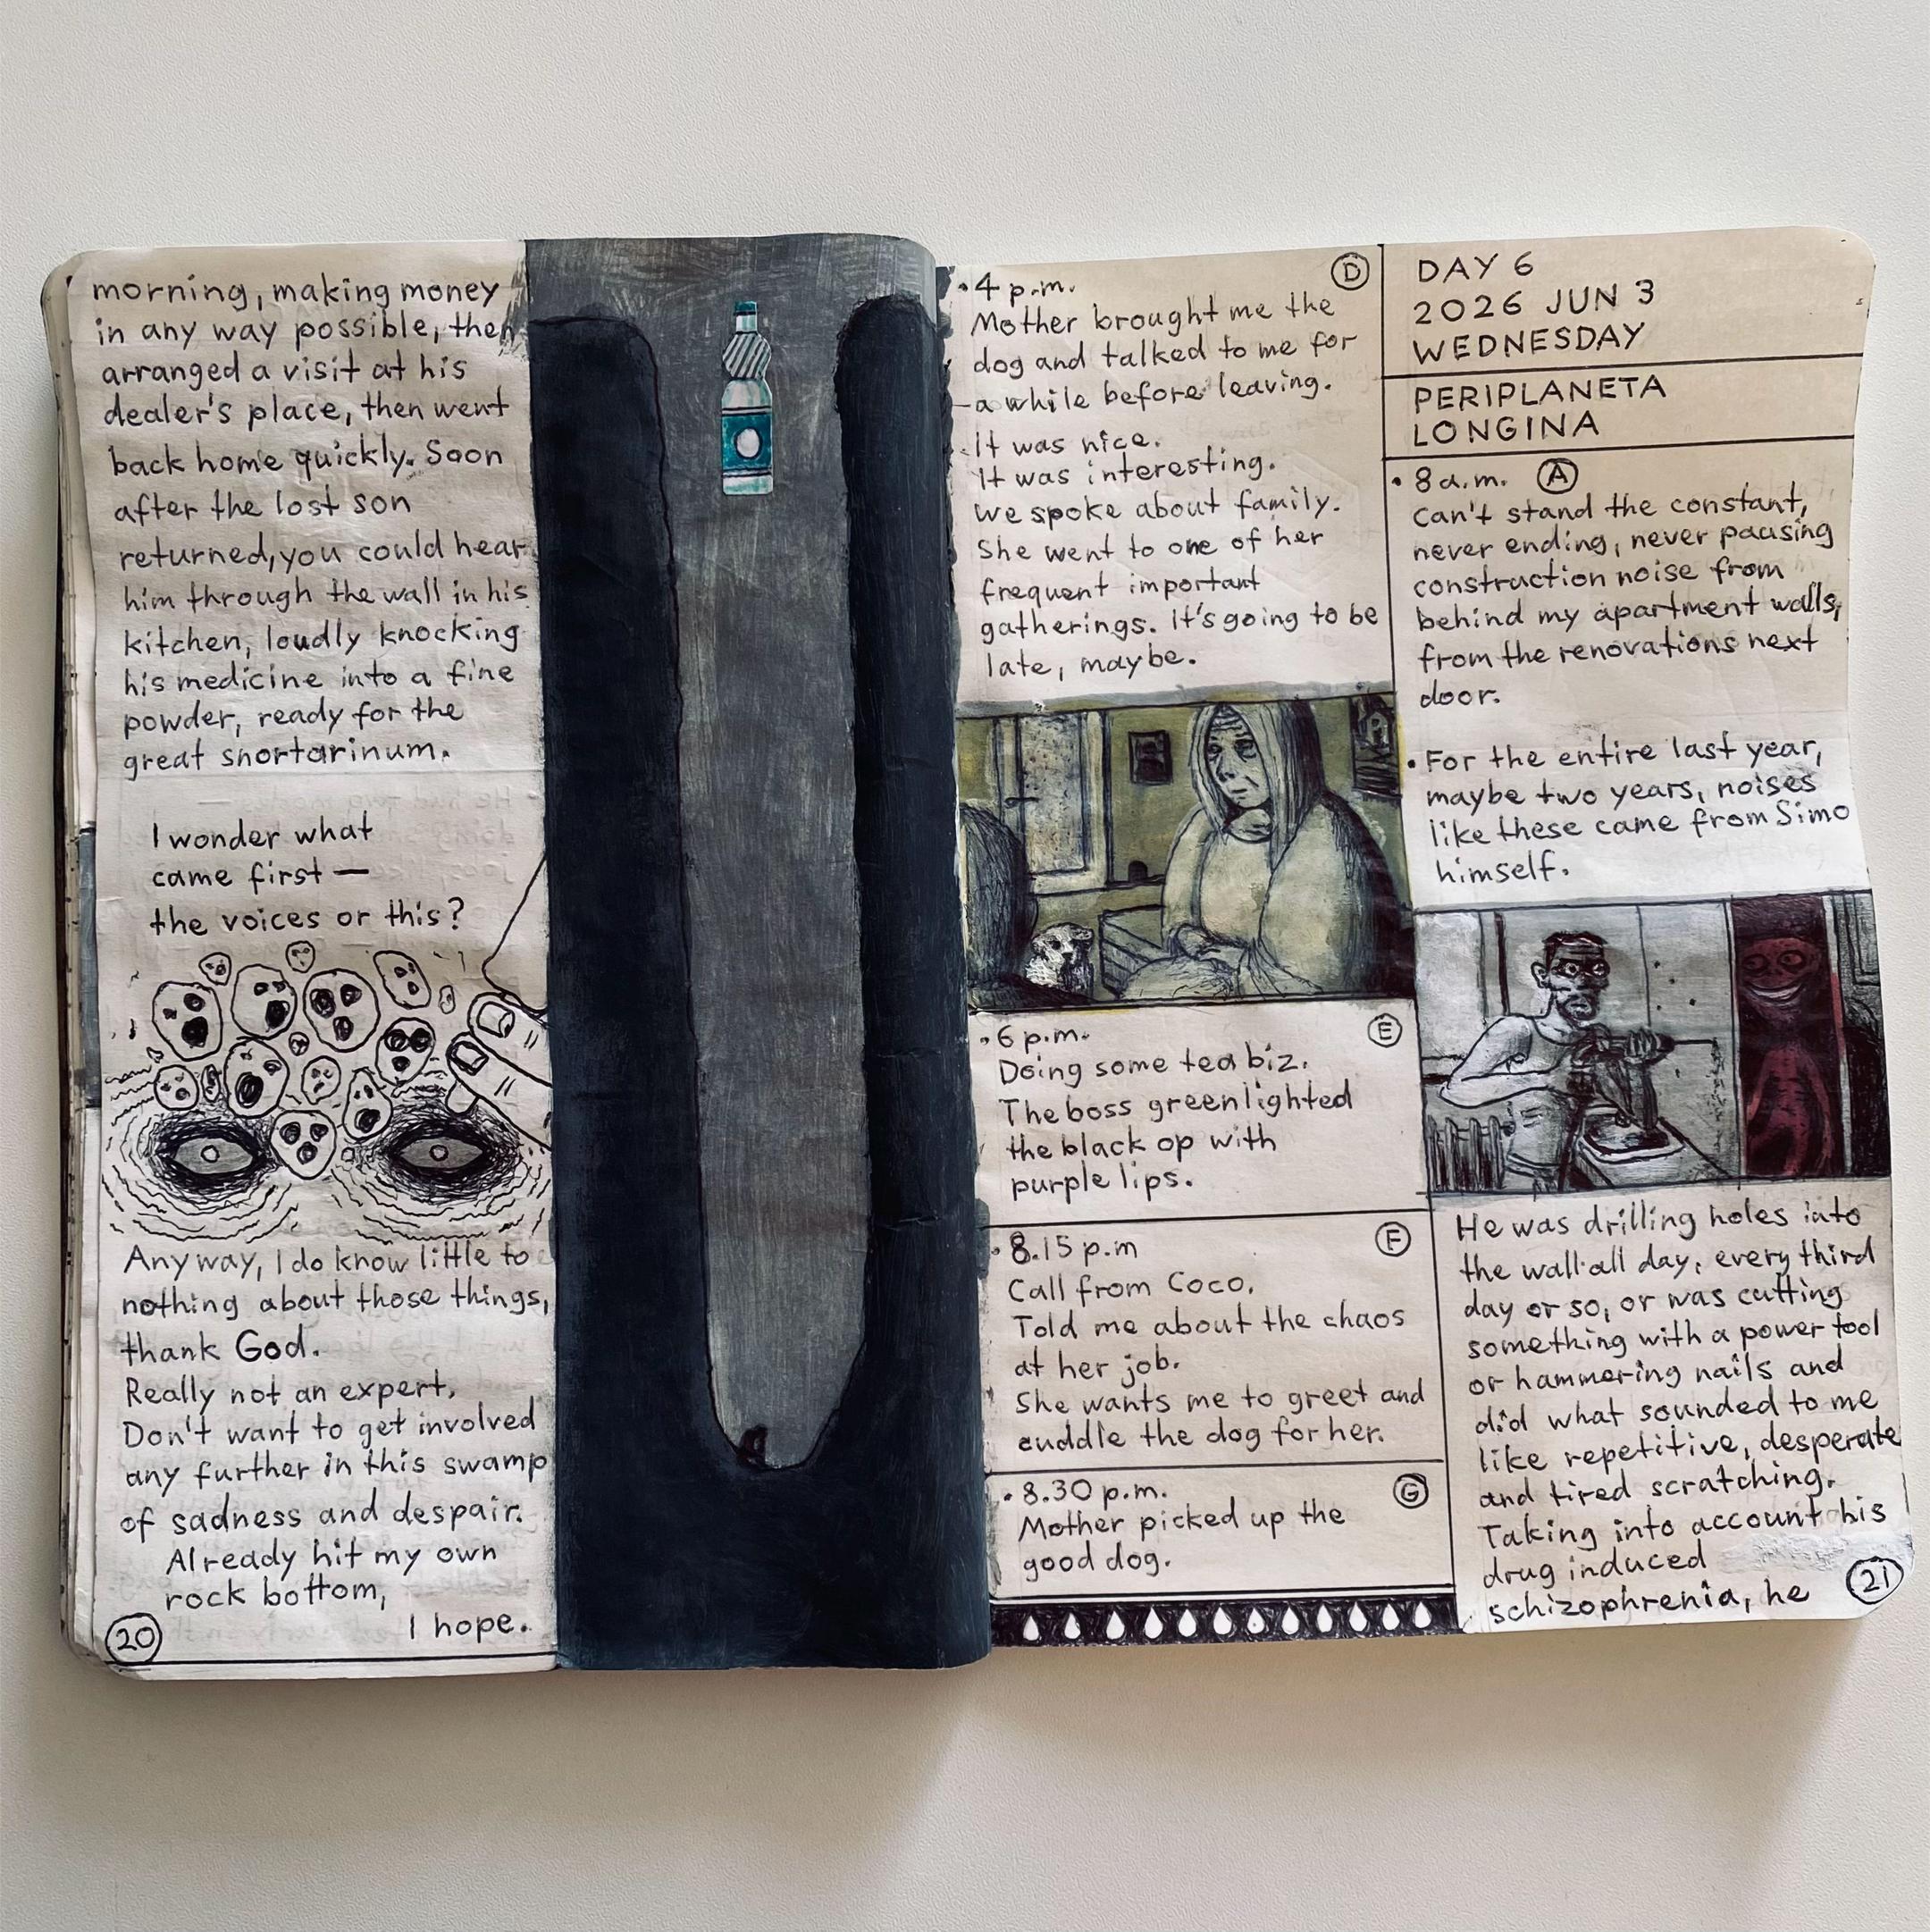 morning, making money
in any way possible, then
arranged a visit at his
dealer's place, then went
back home quickly. Soon
after the lost son
returned, you could hear
him through the wall in his
kitchen, loudly knocking
his medicine into a fine
powder, ready for the
great snortarinum.
I wonder what
came first —
the voices or this?
Anyway, I do know little to
nothing about those things,
thank God.
Really not an expert.
Don't want to get involved
any further in this swamp
of sadness and despair.
Already hit my own
rock bottom,
I hope.
20
• 4 p.m.
D
Mother brought me the
dog and talked to me for
a while before leaving.
It was nice.
It was interesting.
We spoke about family.
She went to one of her
frequent important
gatherings. It's going to be
late, maybe.
• 6 p.m.
E
Doing some tea biz.
The boss greenlighted
the black op with
purple lips.
• 8.15 p.m
F
Call from Coco.
Told me about the chaos
at her job.
She wants me to greet and
cuddle the dog for her.
• 8.30 p.m.
G
Mother picked up the
good dog.
DAY 6
2026 JUN 3
WEDNESDAY
PERIPLANETA
LONGINA
• 8 a.m. A
Can't stand the constant,
never ending, never pausing
construction noise from
behind my apartment walls,
from the renovations next
door.
• For the entire last year,
maybe two years, noises
like these came from Simo
himself.
He was drilling holes into
the wall all day, every third
day or so, or was cutting
something with a power tool
or hammering nails and
did what sounded to me
like repetitive, desperate
and tired scratching.
Taking into account his
drug induced
schizophrenia, he
21